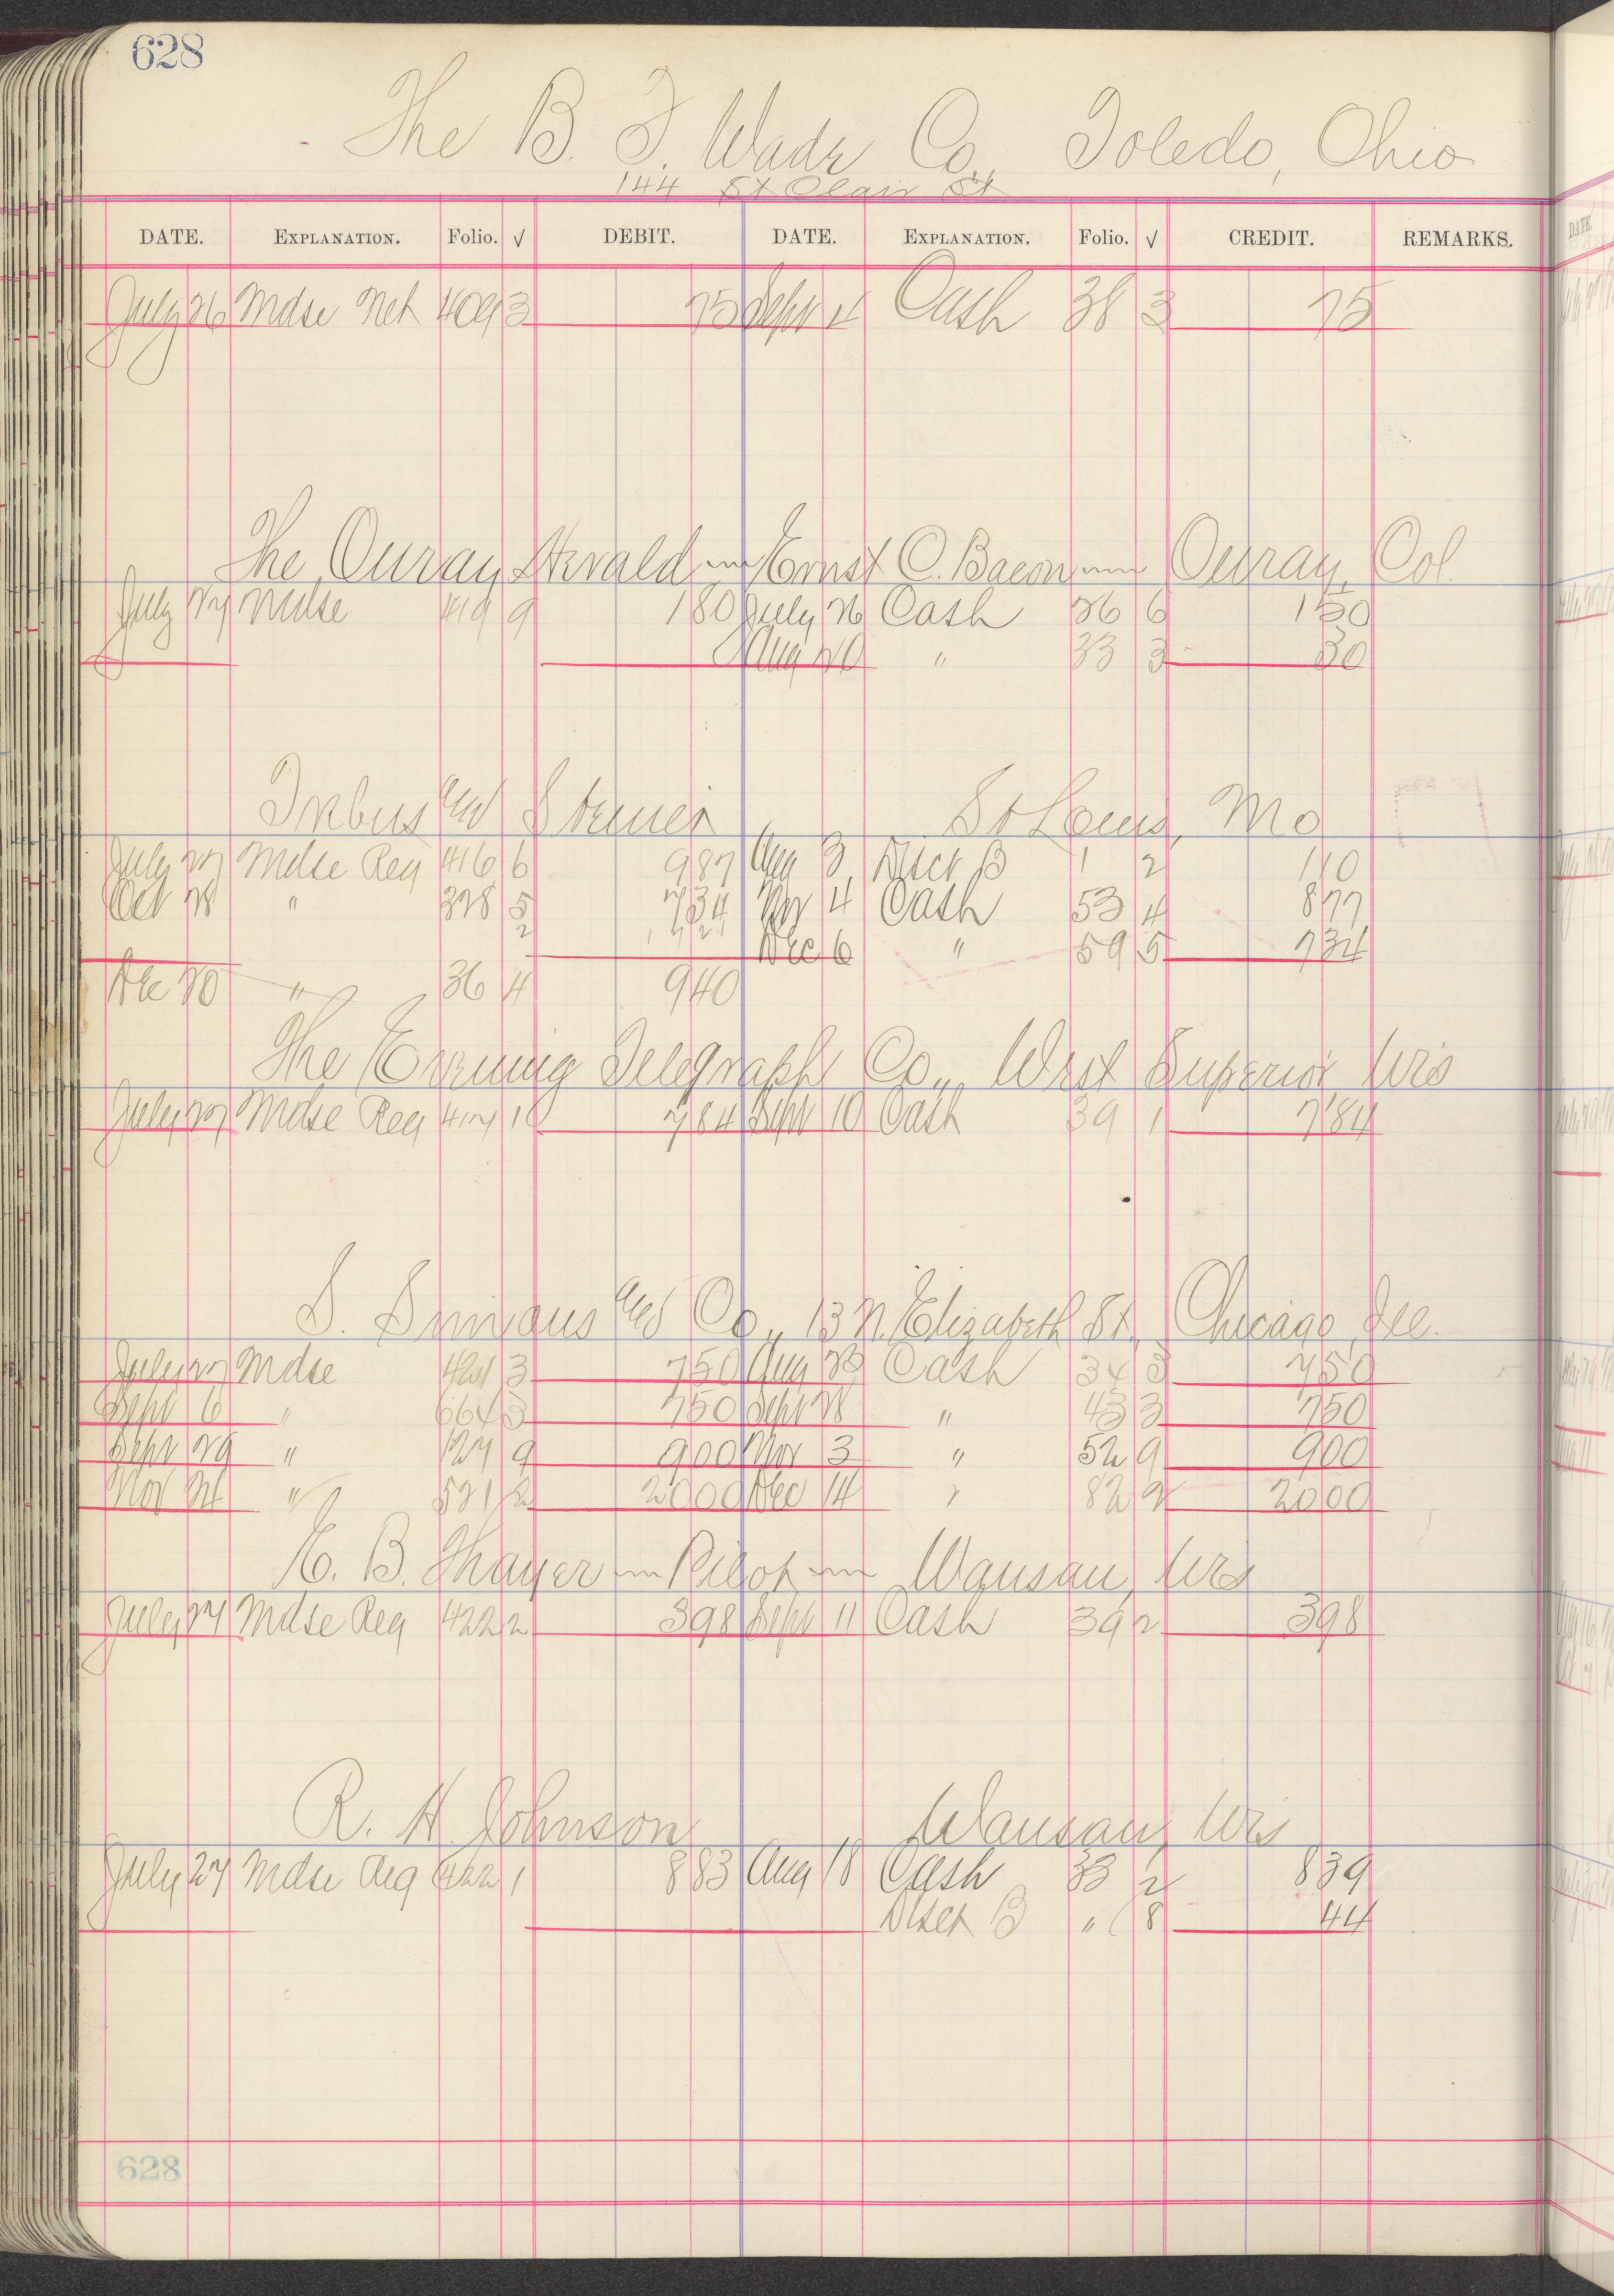 628
The B. F. Wade Co., Toledo, Ohio
144 St Clair St
DATE. EXPLANATION. Folio. √ DEBIT. DATE. EXPLANATION. Folio. √ CREDIT. REMARKS.
July 26 Mdse Net 409 3 75 Sept 4 Cash 38 3 75
The Ouray Herald Ernst C. Bacon Ouray, Col.
July 27 Mdse 419 9 180 July 26 Cash 26 6 150
Aug 20 " 33 3 30
Inbus and Steiner St Louis, Mo
July 27 Mdse Reg 416 6 987 Aug 3 Disct B 1 2 110
Oct 28 " 328 5 734 Nov 4 Cash 53 4 877
2 Dec 6 " 59 5 734
Dec 20 " 36 4 940
The Evening Telegraph Co., West Superior Wis
July 27 Mdse Reg 417 1 784 Sept 10 Cash 39 1 784
S. Simons and Co., 13 N. Elizabeth St., Chicago Ill.
July 27 Mdse 421 3 750 Aug 23 Cash 34 3 750
Sept 6 " 664 3 750 Sept 28 " 43 3 750
Sept 29 " 127 9 900 Nov 3 " 52 9 900
Nov 24 " 521 2 2000 Dec 14 " 82 2 2000
E. B. Thayer Pilot Wausau, Wis
July 27 Mdse Reg 422 2 398 Sept 11 Cash 39 2 398
R. H. Johnson Wausau, Wis
July 27 Mdse Reg 422 1 883 Aug 18 Cash 33 2 839
Disct B " 8 44
628